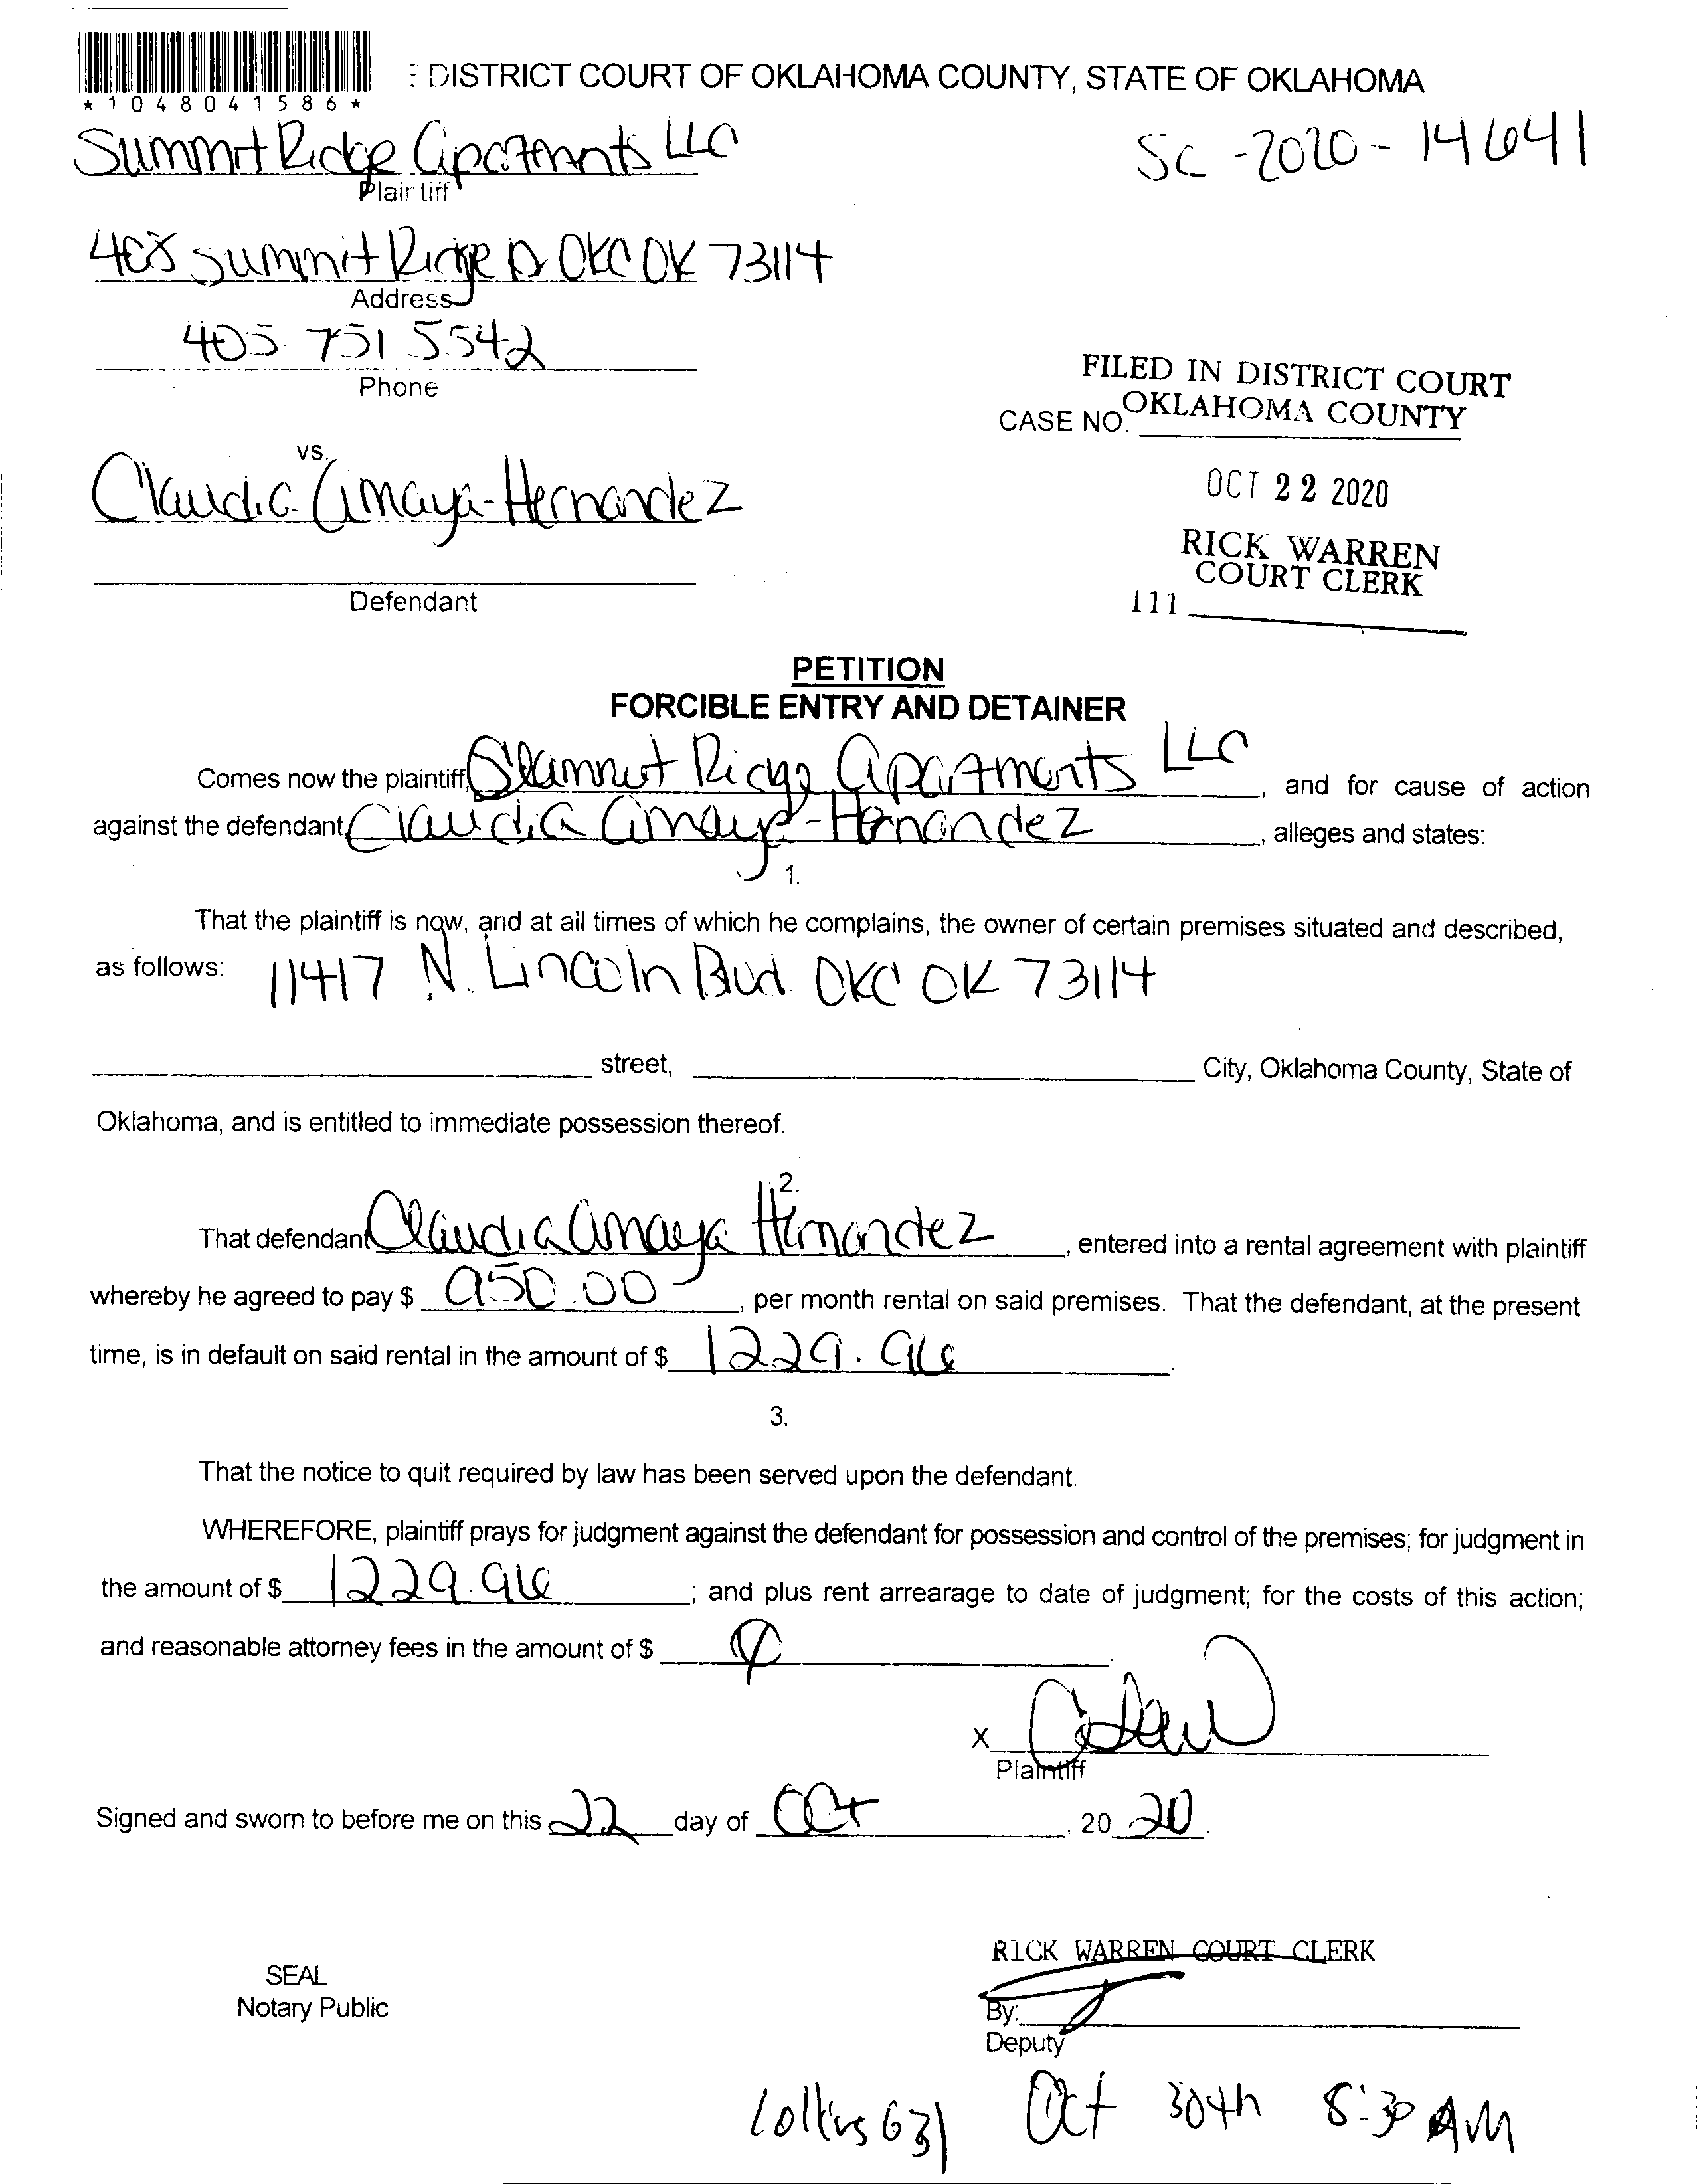 *1048041586*
: DISTRICT COURT OF OKLAHOMA COUNTY, STATE OF OKLAHOMA
Summit Ridge Apartments LLC
SC-2020-14641
Plaintiff
408 Summit Ridge Dr OKC OK 73114
Address
405 751 5542
Phone
FILED IN DISTRICT COURT
OKLAHOMA COUNTY
CASE NO.
vs.
Claudia Amaya-Hernandez
OCT 22 2020
RICK WARREN
COURT CLERK
Defendant
111
PETITION
FORCIBLE ENTRY AND DETAINER
Comes now the plaintiff, Summit Ridge Apartments LLC, and for cause of action
against the defendant Claudia Amaya-Hernandez, alleges and states:
1.
That the plaintiff is now, and at all times of which he complains, the owner of certain premises situated and described,
as follows: 11417 N. Lincoln Blvd OKC OK 73114
street, City, Oklahoma County, State of
Oklahoma, and is entitled to immediate possession thereof.
2.
That defendant Claudia Amaya Hernandez, entered into a rental agreement with plaintiff
whereby he agreed to pay $ 950.00, per month rental on said premises. That the defendant, at the present
time, is in default on said rental in the amount of $ 1229.96.
3.
That the notice to quit required by law has been served upon the defendant.
WHEREFORE, plaintiff prays for judgment against the defendant for possession and control of the premises; for judgment in
the amount of $ 1229.96; and plus rent arrearage to date of judgment; for the costs of this action;
and reasonable attorney fees in the amount of $
X
Plaintiff
Signed and sworn to before me on this 22 day of Oct, 20 20.
RICK WARREN COURT CLERK
SEAL
Notary Public
By:
Deputy
Collins 631 Oct 30th 8:30 AM